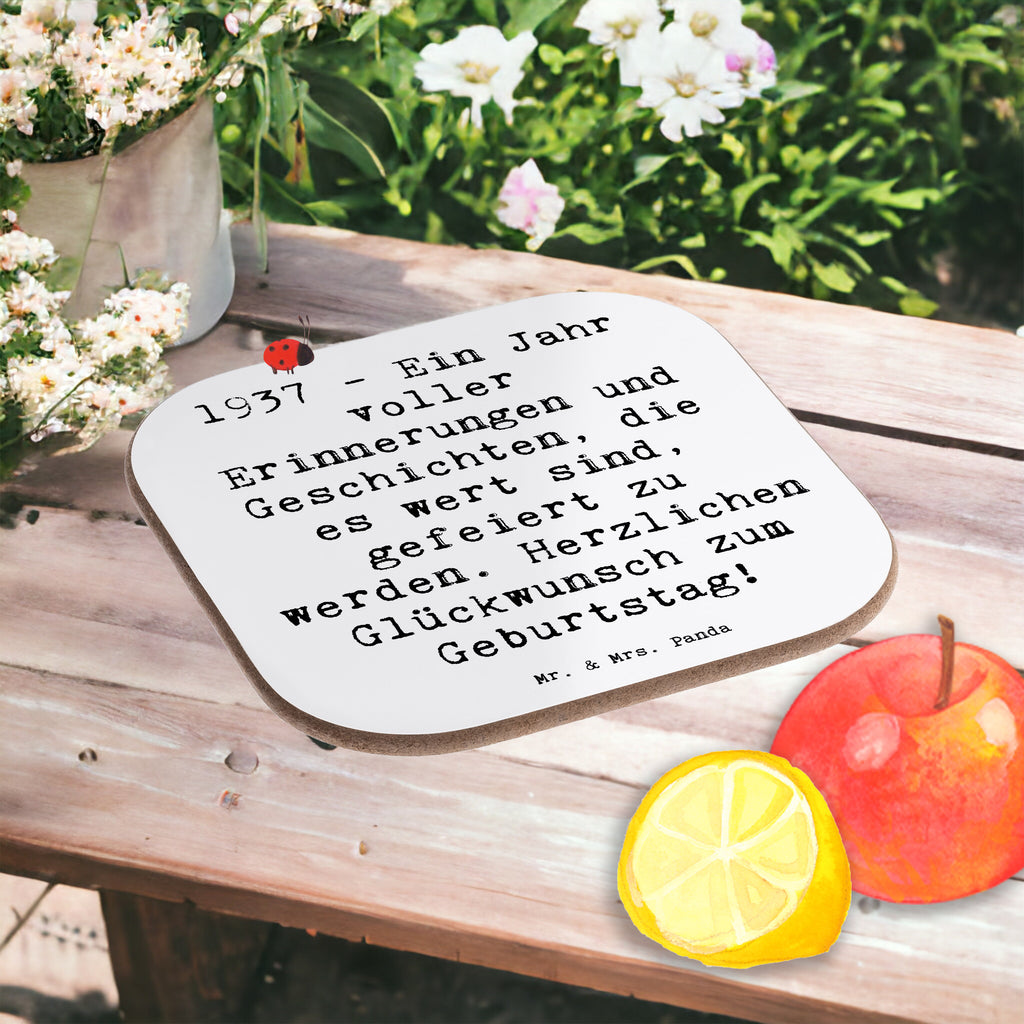 1937 - Ein Jahr
voller
Erinnerungen und
Geschichten, die
es wert sind,
gefeiert zu
werden. Herzlichen
Glückwunsch zum
Geburtstag!
Mr. & Mrs. Panda